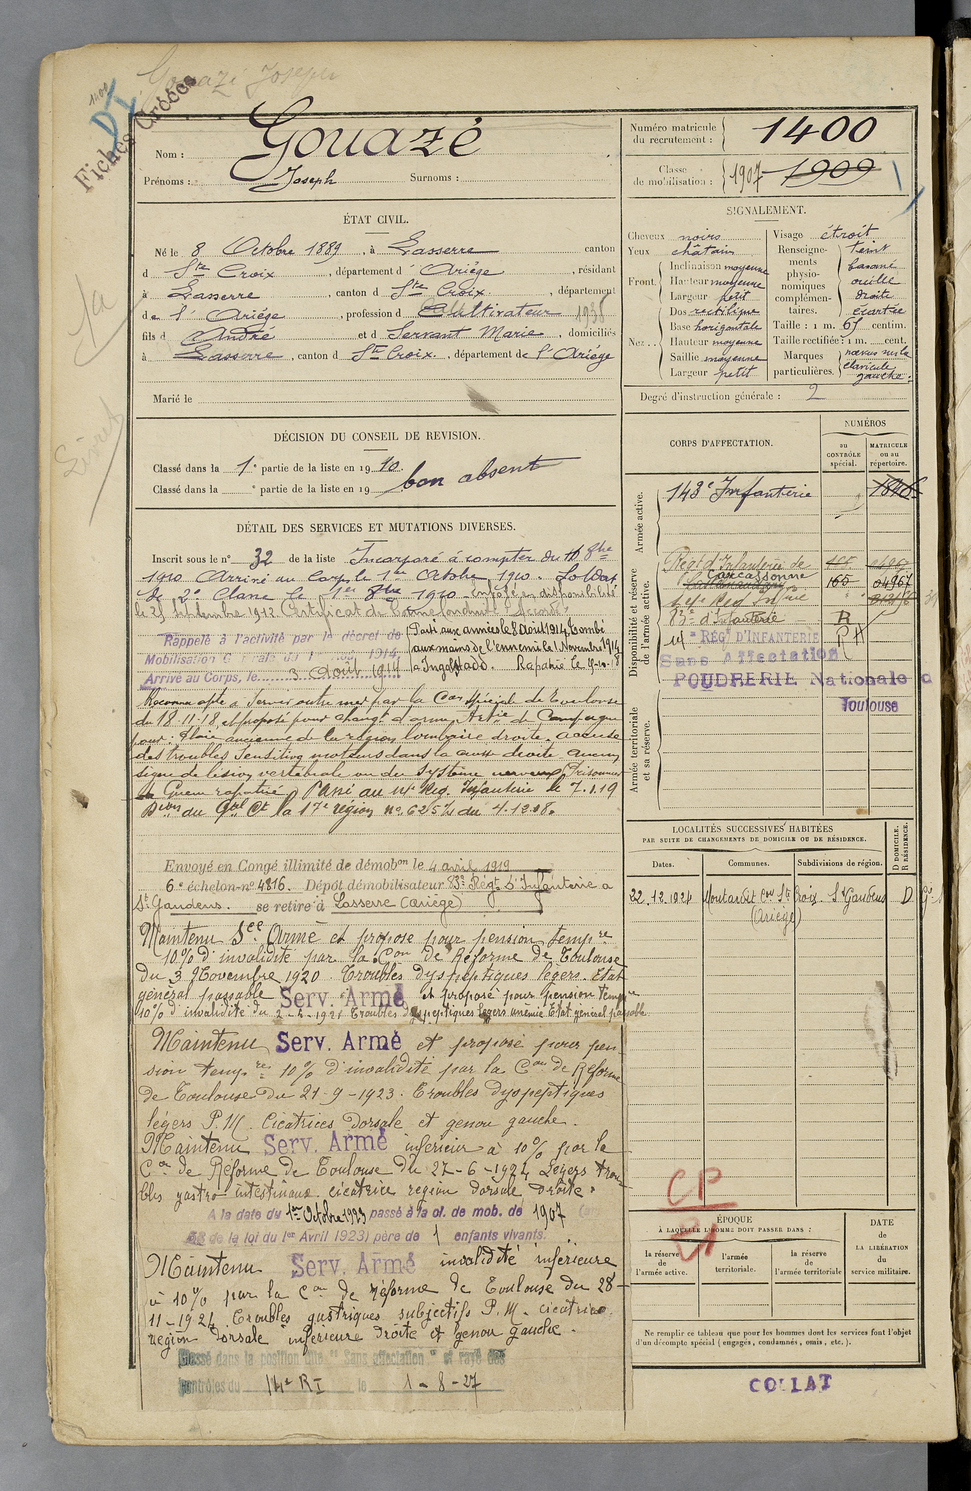 Gouazé Joseph
Fiches Créées
Nom : Gouazé
Prénoms : Joseph Surnoms :
Numéro matricule du recrutement : 1400
Classe de mobilisation : 1907 1909
ÉTAT CIVIL.
Né le 8 Octobre 1889, à Lasserre canton
d Ste Croix, département d' Ariège, résidant
à Lasserre, canton d Ste Croix, département
de l' Ariège, profession d Cultivateur 1935
fils d André et d Servant Marie, domiciliés
à Lasserre, canton d Ste Croix, département de l'Ariège
Marié le
SIGNALEMENT.
Cheveux noirs
Yeux châtain
Front. Inclinaison moyenne
Hauteur moyenne
Largeur petit
Nez. Dos rectiligne
Base horizontale
Hauteur moyenne
Saillie moyenne
Largeur petit
Visage étroit
Renseignements physionomiques complémentaires. teint
basané
oreille
droite
écartée
Taille : 1 m. 65 centim.
Taille rectifiée : 1 m. cent.
Marques particulières. nævus sus la
clavicule
gauche.
Degré d'instruction générale : 2
DÉCISION DU CONSEIL DE REVISION.
Classé dans la 1e partie de la liste en 1910.
Classé dans la e partie de la liste en 19
bon absent
DÉTAIL DES SERVICES ET MUTATIONS DIVERSES.
Inscrit sous le n° 32 de la liste Incorporé à compter du 10 8bre
1910 Arrivé au Corps le 1er Octobre 1910. Soldat
de 2e Classe le 1er 8bre 1910. Envoyé en disponibilité
le 25 septembre 1912. Certificat de bonne conduite "Accordé"
Rappelé à l'activité par le décret de
Mobilisation Générale du 1er Août 1914
Arrivé au Corps, le 3 Août 1914
Parti aux armées le 8 Août 1914. Tombé
aux mains de l'ennemi le 1 Novembre 1914
à Ingolstadt. Rapatrié le
Reconnu apte à servir outre mer par la Con Spéciale de Toulouse
du 18-11-18, et proposé pour changt d'arme Artie de Campagne
pour : Plaie ancienne de la région lombaire droite. accuse
des troubles sensitivo moteurs dans la cuisse droite aucun
signe de lésion vertébrale ou du système nerveux Prisonnier
de Guerre rapatrié Passé au 14e Reg. Infanterie le 7.1.19
Don du Gal Ct la 17e région no 6257 du 4.12.18.
Envoyé en Congé illimité de démobon le 4 avril 1919
6e échelon-no 4816. Dépôt démobilisateur 83e Régt d'Infanterie à
St Gaudens. se retire à Lasserre (Ariège)
Maintenu See Armé et proposé pour pension tempre
10% d'invalidité par la Con de Réforme de Toulouse
du 3 Novembre 1920. Troubles dyspeptiques légers. Etat
général passable Serv. Armé et proposé pour pension tempre
10% d'invalidité du 2-2-1921 Troubles dyspeptiques légers anémie Etat général passable
Maintenu Serv. Armé et proposé pour pen-
sion tempre 10% d'invalidité par la Con de Réforme
de Toulouse du 21-9-1923. Troubles dyspeptiques
légers P.M. Cicatrices dorsale et genou gauche.
Maintenu Serv. Armé inférieur à 10% par la
Con de Réforme de Toulouse du 27-6-1924 Légers trou-
bles gastro-intestinaux cicatrice région dorsale droite.
A la date du 1er Octobre 1923 passé à la cl. de mob. de 1907
de la loi du 1er Avril 1923) père de 1 enfants vivants.
Maintenu Serv. Armé invalidité inférieure
à 10% par la Con de réforme de Toulouse du 28-
11-1924. Troubles gastriques subjectifs P.M. cicatrice
région dorsale inférieure droite et genou gauche.
Classé dans la position dite "Sans affectation" et rayé des
contrôles du 14e RI le 1-8-27
CORPS D'AFFECTATION.
NUMÉROS
au CONTRÔLE spécial.
MATRICULE ou au répertoire.
Armée active.
143e Infanterie 1848
Disponibilité et réserve de l'armée active.
Régt d'Infanterie de
Carcassonne
165 04967
83e d'Infanterie R
14e RÉGt D'INFANTERIE
Sans Affectation
POUDRERIE Nationale d
Toulouse
Armée territoriale et sa réserve.
LOCALITÉS SUCCESSIVES HABITÉES
PAR SUITE DE CHANGEMENTS DE DOMICILE OU DE RÉSIDENCE.
Dates. Communes. Subdivisions de région. D DOMICILE. R RÉSIDENCE.
22.12.1924 Montardit con Ste Croix. St Gaudens D
(Ariège)
CP
21
ÉPOQUE
À LAQUELLE L'HOMME DOIT PASSER DANS :
la réserve de l'armée active.
l'armée territoriale.
la réserve de l'armée territoriale
DATE de LA LIBÉRATION du service militaire.
Ne remplir ce tableau que pour les hommes dont les services font l'objet
d'un décompte spécial (engagés, condamnés, omis, etc.).
COLLAT